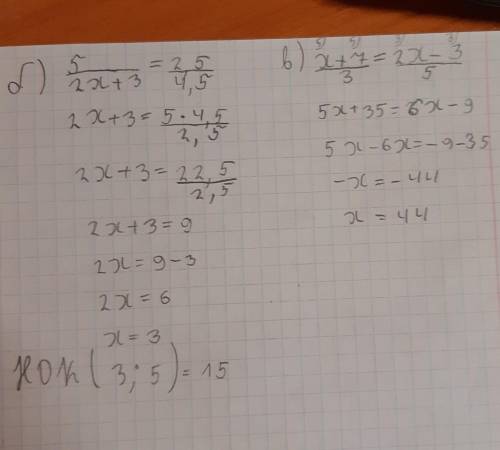 б) 5/(2x+3) = 2 5/4,5
2x+3 = 5·4,5/2,5
2x+3 = 22,5/2,5
2x+3 = 9
2x = 9-3
2x = 6
x = 3
НОК(3;5)=15
в) x+7/3 = 2x-3/5
5x+35 = 6x-9
5x-6x=-9-35
-x = -44
x = 44